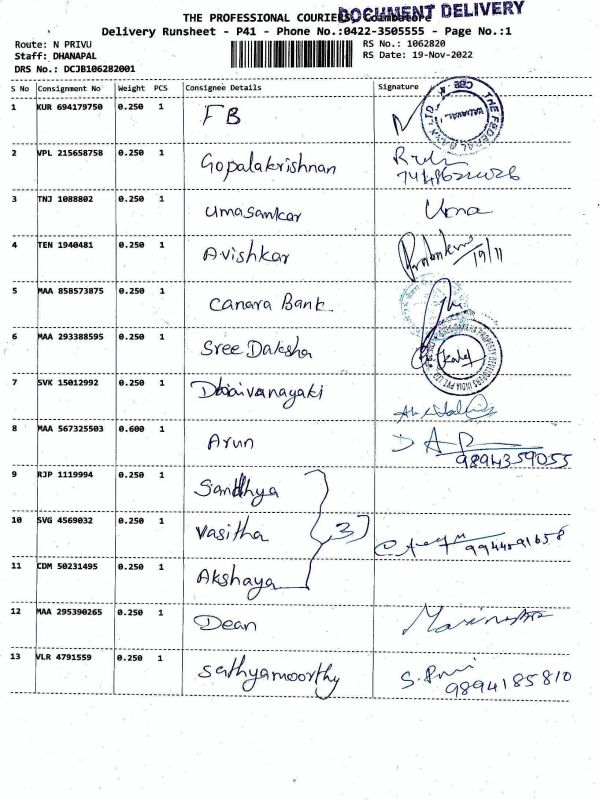 DOCUMENT DELIVERY
THE PROFESSIONAL COURIERS, Coimbatore
Delivery Runsheet - P41 - Phone No.:0422-3505555 - Page No.:1
Route: N PRIVU RS No.: 1062820
Staff: DHANAPAL RS Date: 19-Nov-2022
DRS No.: DCJB106282001
S No Consignment No Weight PCS Consignee Details Signature
1 KUR 694179750 0.250 1 FB
THE FEDERAL BANK LTD
2 VPL 215658758 0.250 1 Gopalakrishnan
3 TNJ 1088802 0.250 1 Umasankar Uma
4 TEN 1940481 0.250 1 Avishkar 19/11
5 MAA 858573875 0.250 1 Canara Bank
6 MAA 293388595 0.250 1 Sree Daksha
PROPERTY DEVELOPERS INDIA PVT LTD
7 SVK 15012992 0.250 1 Dhaivanayaki
8 MAA 567325503 0.600 1 Arun
9894359055
9 RJP 1119994 0.250 1 Sandhya
10 SVG 4569032 0.250 1 Vasitha 3 9944591658
11 CDM 50231495 0.250 1 Akshaya
12 MAA 295390265 0.250 1 Dean
13 VLR 4791559 0.250 1 Sathyamoorthy
9894185810